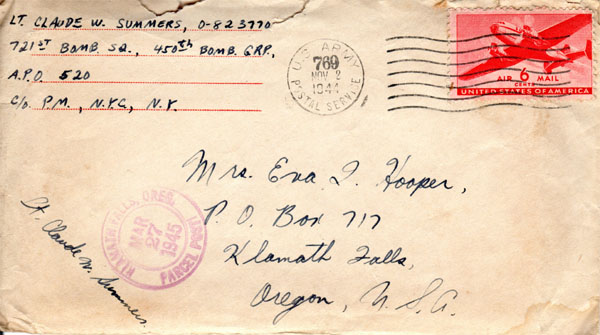 LT. CLAUDE W. SUMMERS, O-823770
721ST BOMB. SQ., 450th BOMB. GRP.,
A.P.O. 520
C/o P.M., N.Y.C., N.Y.
U.S. ARMY
769
NOV 2
1944
POSTAL SERVICE
AIR 6 MAIL
CENTS
UNITED STATES OF AMERICA
Mrs. Eva I. Hooper,
P. O. Box 717
Klamath Falls,
Oregon, U.S.A.
KLAMATH FALLS, OREG.
MAR
27
1945
PARCEL POST
Lt. Claude W. Summers.